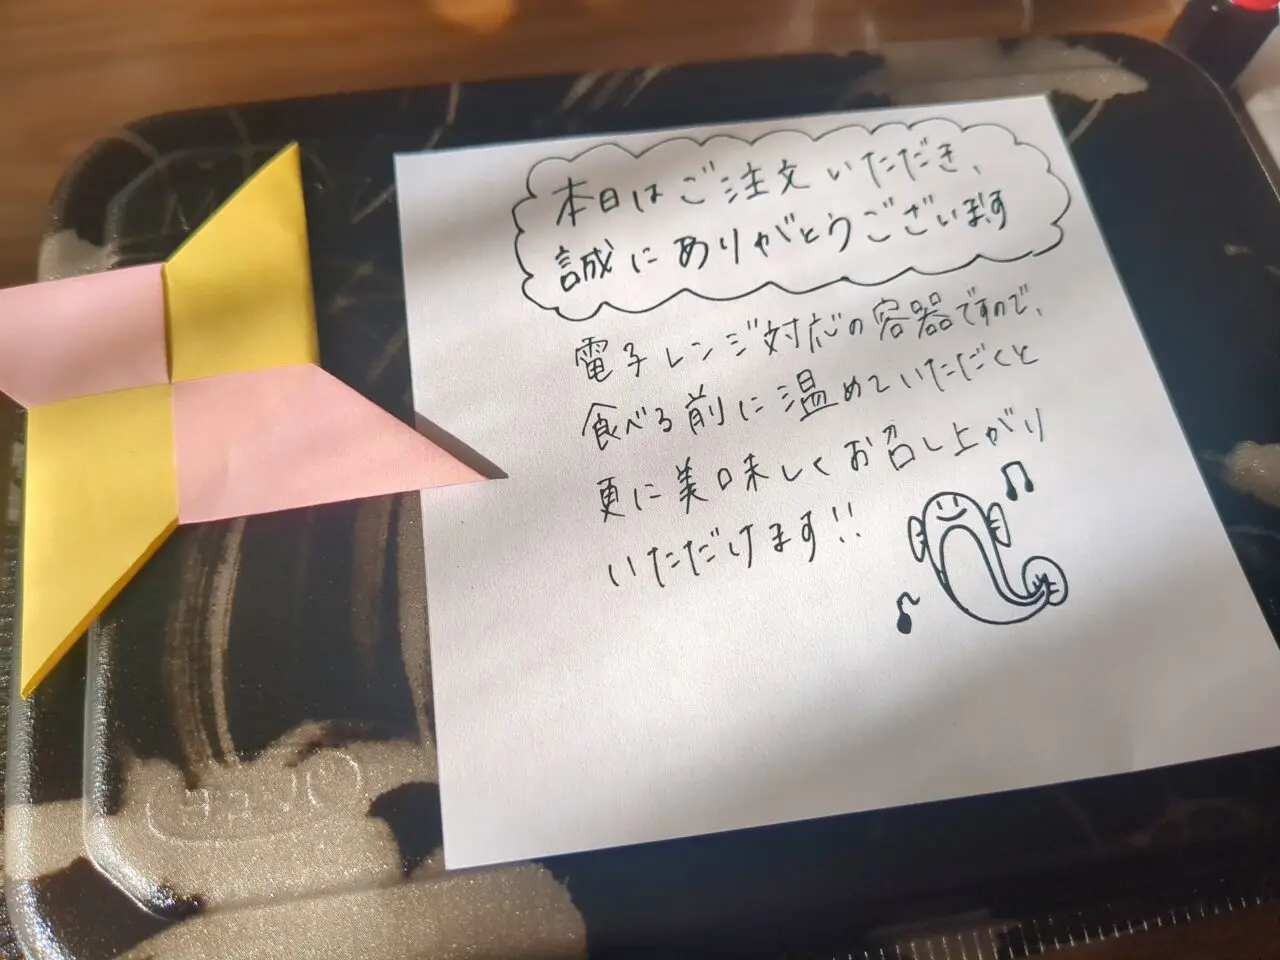 本日はご注文いただき、
誠にありがとうございます
電子レンジ対応の容器ですので、
食べる前に温めていただくと
更に美味しくお召し上がり
いただけます!!